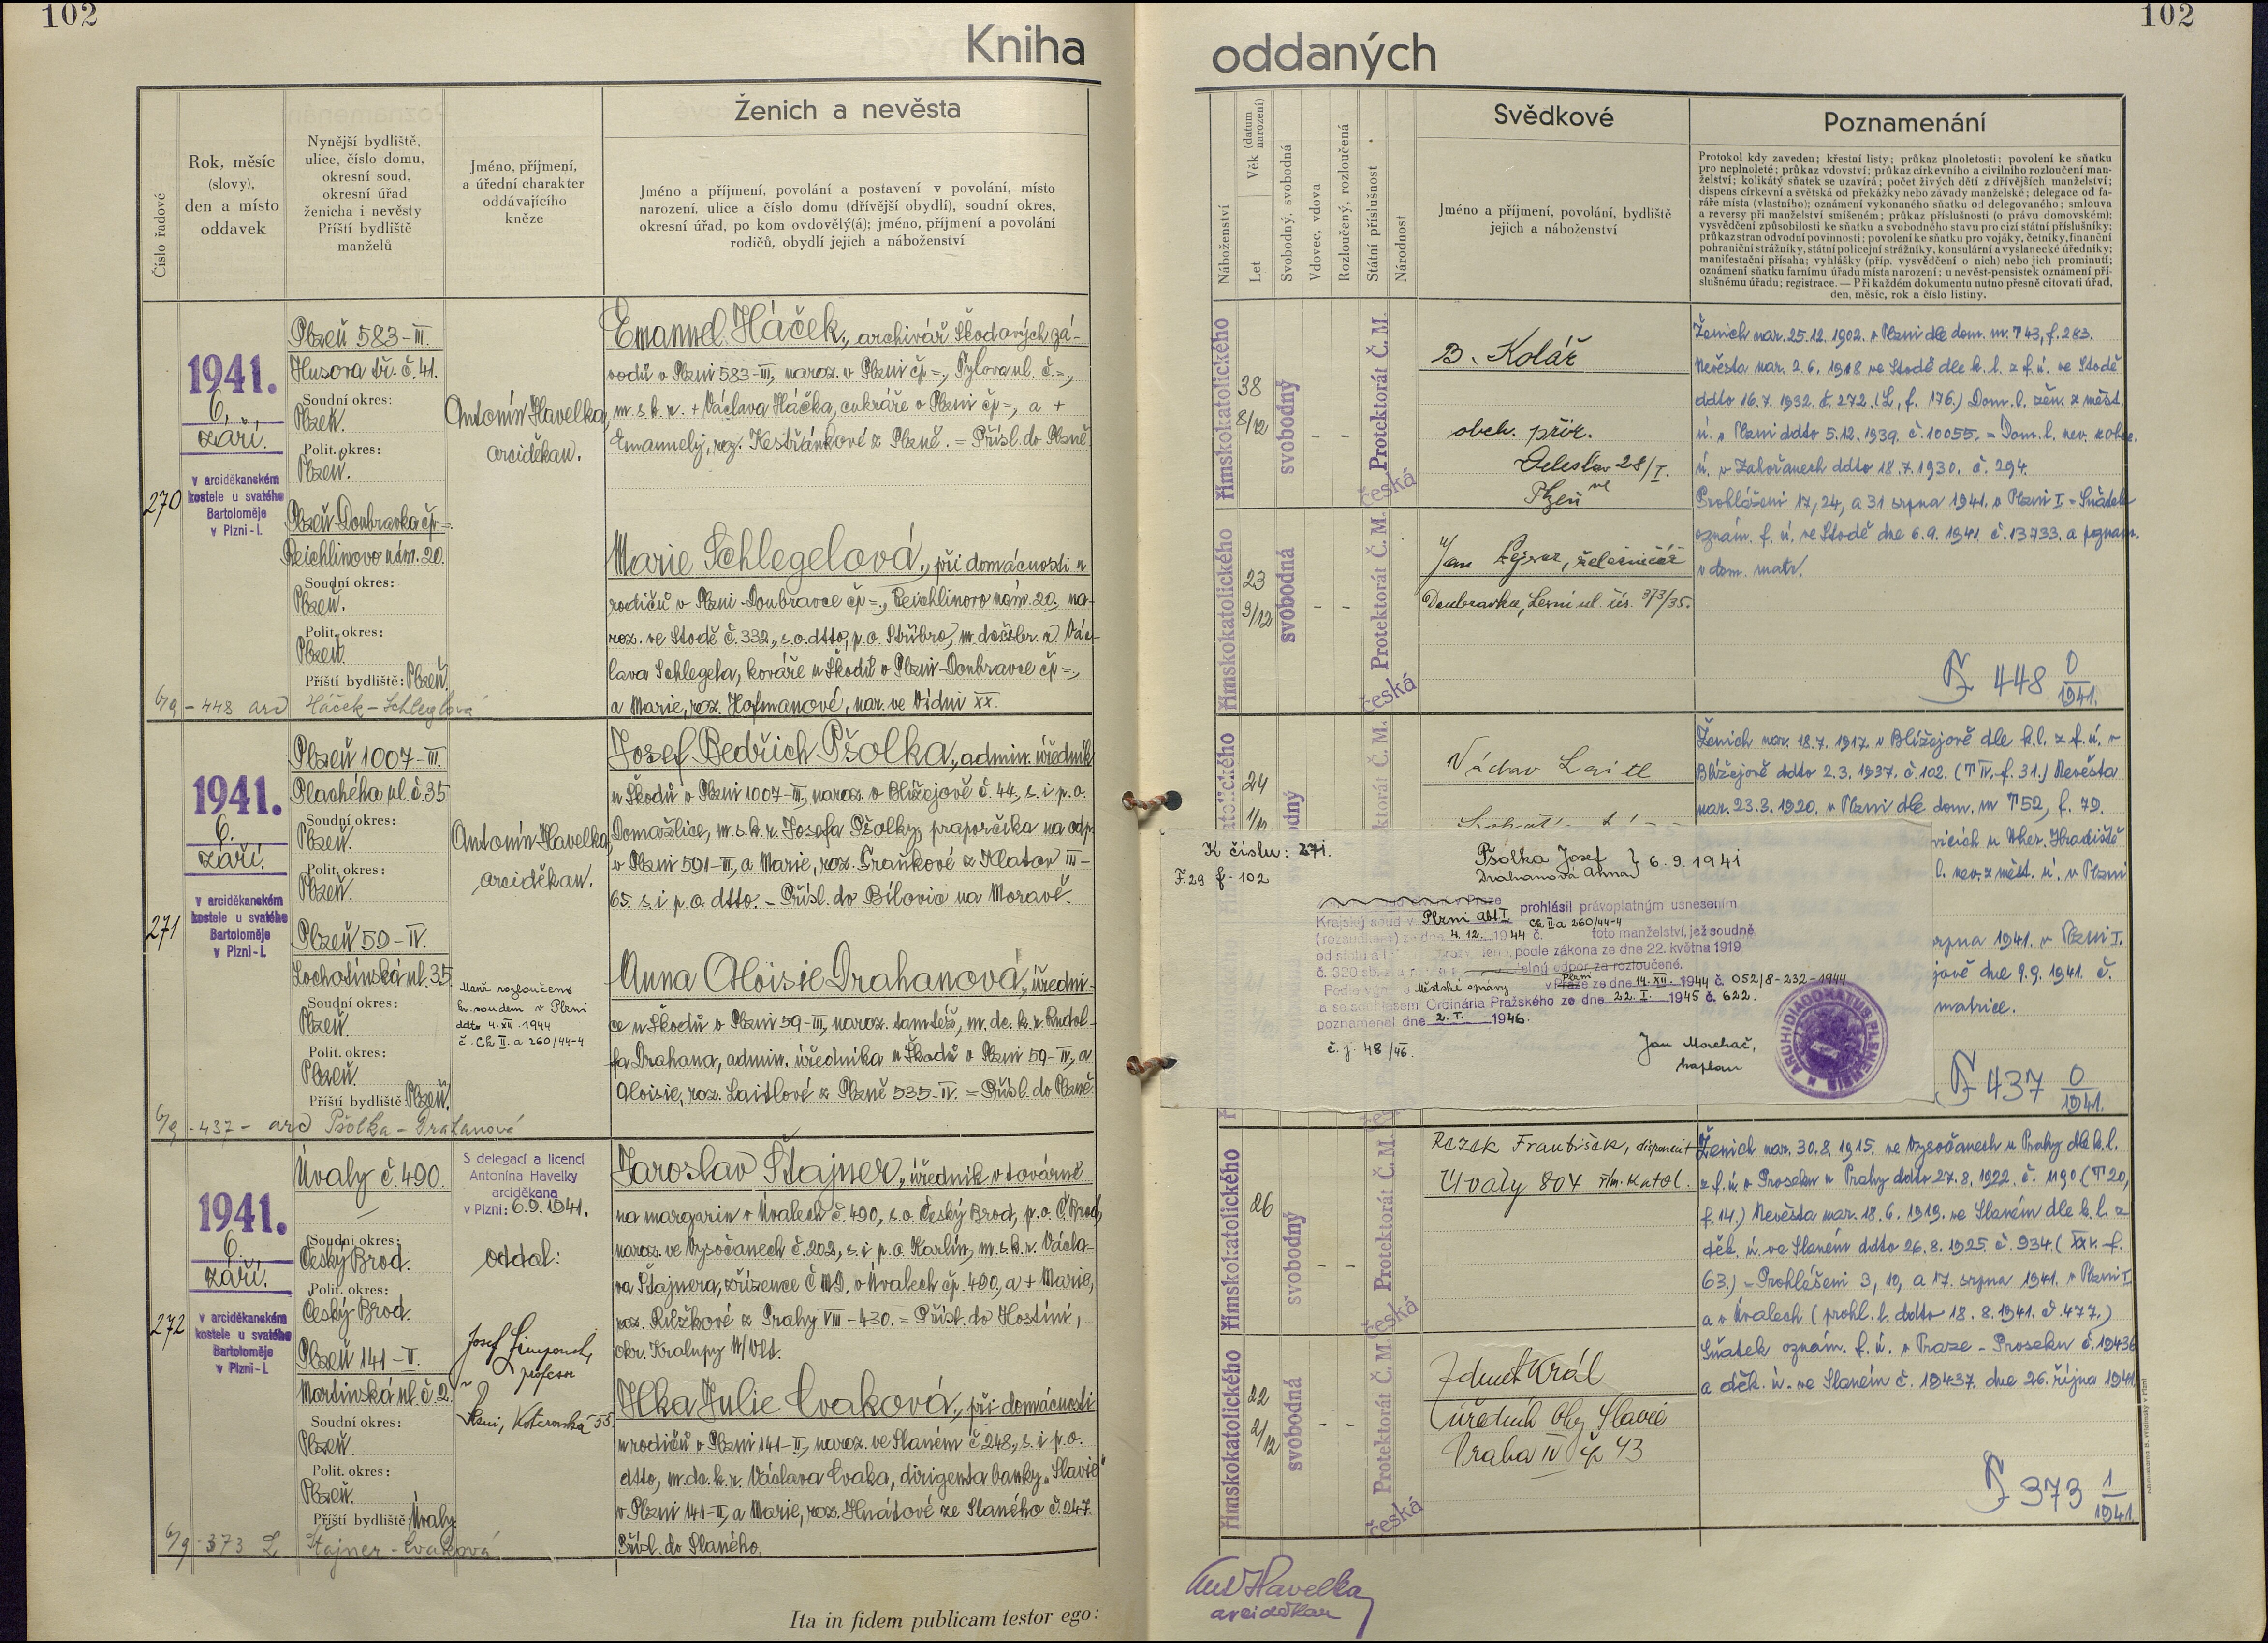 102
102
Kniha
oddaných
Číslo řadové
Rok, měsíc
(slovy),
den a místo
oddavek
Nynější bydliště,
ulice, číslo domu,
okresní soud,
okresní úřad
ženicha i nevěsty
Příští bydliště
manželů
Jméno, příjmení,
a úřední charakter
oddávajícího
kněze
Ženich a nevěsta
Jméno a příjmení, povolání a postavení v povolání, místo
narození, ulice a číslo domu (dřívější obydlí), soudní okres,
okresní úřad, po kom ovdověly(á); jméno, příjmení a povolání
rodičů, obydlí jejich a náboženství
Náboženství
Let
Věk (datum narození)
Svobodný, svobodná
Vdovec, vdova
Rozloučený, rozloučená
Státní příslušnost
Národnost
Svědkové
Jméno a příjmení, povolání, bydliště
jejich a náboženství
Poznamenání
Protokol kdy zaveden; křestní listy; průkaz plnoletosti; povolení ke sňatku
pro neplnoleté; průkaz vdovství; průkaz církevního a civilního rozloučení man-
želství; kolikátý sňatek se uzavírá; počet živých dětí z dřívějších manželství;
dispens církevní a světská od překážky nebo závady manželské; delegace od fa-
ráře místa (vlastního); oznámení vykonaného sňatku od delegovaného; smlouva
a reversy při manželství smíšeném; průkaz příslušnosti (o právu domovském);
vysvědčení způsobilosti ke sňatku a svobodného stavu pro cizí státní příslušníky;
průkaz stran odvodní povinnosti; povolení ke sňatku pro vojáky, četníky, finanční
pohraniční strážníky, státní policejní strážníky, konsulární a vyslanecké úředníky;
manifestační přísaha; vyhlášky (příp. vysvědčení o nich) nebo jich prominutí;
oznámení sňatku farnímu úřadu místa narození; u nevěst-pensistek oznámení pří-
slušnému úřadu; registrace. — Při každém dokumentu nutno přesně citovati úřad,
den, měsíc, rok a číslo listiny.
270
1941.
6.
září.
v arciděkanském
kostele u svatého
Bartoloměje
v Plzni-I.
Plzeň 583-III.
Husova tř. č. 41.
Soudní okres:
Plzeň.
Polit. okres:
Plzeň.
Plzeň-Doubravka čp=.
Reichlinovo nám. 20.
Soudní okres:
Plzeň.
Polit. okres:
Plzeň.
Příští bydliště: Plzeň.
6/9 - 448 arc Háček - Schleglová
Antonín Havelka,
arciděkan.
Emanuel Háček, archivář Škodových zá-
vodů v Plzni 583-III, naroz. v Plzni čp=, Tylova ul. č.=,
m. s. k. r. + Václava Háčka, cukráře v Plzni čp=, a +
Emanuely, roz. Kestřánkové z Plzně. = Přísl. do Plzně.
Marie Schlegelová, při domácnosti u
rodičů v Plzni-Doubravce čp=, Reichlinovo nám. 20, na-
roz. ve Stodě č. 332, s. o. dtto, p. o. Stříbro, m. dc. k. r. Vác-
lava Schlegela, kováře u Škodů v Plzni-Doubravce čp=,
a Marie, roz. Hofmanové, nar. ve Vídni XX.
římskokatolického
38
8/12
svobodný
- -
Protektorát Č. M.
česká
římskokatolického
23
3/12
svobodná
- -
Protektorát Č. M.
česká
B. Kolář
obch. přír.
28/I.
Plzeň
Jan Lejsar, železničář
Doubravka, Lesní ul. čís. 373/35.
Ženich nar. 25.12.1902. v Plzni dle dom. m. T 43, f. 283.
Nevěsta nar. 2.6.1918 ve Stodě dle k. l. z f. ú. ve Stodě
ddto 16.7.1932. č. 272. (L, f. 176.) Dom. l. žen. z měst.
ú. v Plzni ddto 5.12.1939. č. 10055. = Dom. l. nev. z obec.
ú. v Zahořanech ddto 18.7.1930. č. 294.
Prohlášeni 17, 24, a 31 srpna 1941. v Plzni I = Sňatek
oznám. f. ú. ve Stodě dne 6.9.1941. č. 13733. a poznam.
v dom. matr.
448 0/1941.
271
1941.
6.
září.
v arciděkanském
kostele u svatého
Bartoloměje
v Plzni-I.
Plzeň 1007-III.
Plachého ul. č. 35.
Soudní okres:
Plzeň.
Polit. okres:
Plzeň.
Plzeň 59-IV.
Lochotínská ul. 35.
Soudní okres:
Plzeň.
Polit. okres:
Plzeň.
Příští bydliště: Plzeň.
6/9 - 437 - arc Pšolka - Drahanová
Antonín Havelka,
arciděkan.
Manž. rozloučeno
kr. soudem v Plzni
ddto 4. XII. 1944
č. Ck II. a 260/44-4
Josef Bedřich Pšolka, admin. úředník
u Škodů v Plzni 1007-III, naroz. v Blížejově č. 44, s. i p. o.
Domažlice, m. s. k. r. Josefa Pšolky, praporčíka na odp.
v Plzni 591-III, a Marie, roz. Fraňkové z Klatov III-
65. s. i p. o. dtto. - Přísl. do Bílovic na Moravě.
Anna Aloisie Drahanová, úředni-
ce u Škodů v Plzni 59-III, naroz. tamtéž, m. dc. k. r. Rudol-
fa Drahana, admin. úředníka u Škodů v Plzni 59-IV, a
Aloisie, roz. Laitlové z Plzně 535-IV. = Přísl. do Plzně.
24
1/12
Protektorát Č. M.
Václav Laitl
Ženich nar. 18.7.1917. v Blížejově dle k. l. z f. ú. v
Blížejově ddto 2.3.1937. č. 102. (T IV. f. 31.) Nevěsta
nar. 23.3.1920. v Plzni dle dom. m T 52, f. 79.
vicích u Uher. Hradiště
l. nev. z měst. ú. v Plzni
rpna 1941. v Plzni I.
jově dne 9.9.1941. č.
matrice.
437 0/1941.
K číslu: 271.
F. 29 f. 102
Pšolka Josef
Drahanová Anna } 6. 9. 1941
prohlásil právoplatným usnesením
Krajský soud v Plzni abt. I Ck II a 260/44-4
(rozsudkem) ze dne 4. 12. 1944 č. toto manželství, jež soudně
od stolu a podle zákona ze dne 22. května 1919
č. 320 sb. odpor za rozloučené.
Podle Městské správy v Plzni ze dne 14. XII. 1944 č. 052/8-232-1944
a se souhlasem Ordinária Pražského ze dne 22. I. 1945 č. 622.
poznamenal dne 2. I. 1946.
č. j. 48/46.
Jan Morchač,
kaplan
ARCHIDIACONATUS PLSNENSIS
272
1941.
6.
září.
v arciděkanském
kostele u svatého
Bartoloměje
v Plzni-I.
Úvaly č. 490.
Soudní okres:
Český Brod.
Polit. okres:
Český Brod.
Plzeň 141-II.
Martinská ul. č. 2.
Soudní okres:
Plzeň.
Polit. okres:
Plzeň.
Příští bydliště: Úvaly.
6/9 - 373 L Štajner - Cvaková
S delegací a licencí
Antonína Havelky
arciděkana
v Plzni: 6.9.1941.
oddal:
Josef
profesor
v
Plzni, Koterovská 55
Jaroslav Štajner, úředník v továrně
na margarin v Úvalech č. 490, s. o. Český Brod, p. o. Č. Brod,
naroz. ve Vysočanech č. 202, s. i p. o. Karlín, m. s. k. r. Václa-
va Štajnera, zřízence ČMD. v Úvalech čp. 490, a + Marie,
roz. Růžkové z Prahy VIII-430. = Přísl. do Hostíni,
okr. Kralupy n/Vlt.
Ilka Julie Cvaková, při domácnosti
u rodičů v Plzni 141-II, naroz. ve Slaném č. 248, s. i p. o.
dtto, m. dc. k. r. Václava Cvaka, dirigenta banky „Slavie"
v Plzni 141-II, a Marie, roz. Hnátové ze Slaného č. 247.
Přísl. do Slaného.
římskokatolického
26
svobodný
- -
Protektorát Č. M.
česká
římskokatolického
22
2/12
svobodná
- -
Protektorát Č. M.
česká
Rezek František, disponent
Úvaly 804 řím. katol.
Zdeněk Král
úředník bky Slavie
Praha IV čp 43
Ženich nar. 30.8.1915. ve Vysočanech u Prahy dle k. l.
z f. ú. v Proseku u Prahy ddto 27.8.1922. č. 1190 (T 20,
f. 14.) Nevěsta nar. 18.6.1919. ve Slaném dle k. l. z
děk. ú. ve Slaném ddto 26.8.1925. č. 934. (XXV. f.
63.) - Prohlášeni 3, 10, a 17. srpna 1941. v Plzni I.
a v Úvalech (prohl. l. ddto 18.8.1941. č. 477.)
Sňatek oznám. f. ú. v Praze - Proseku č. 19436
a děk. ú. ve Slaném č. 19437. dne 26. října 1941.
373 1/1941.
Ita in fidem publicam testor ego:
Ant Havelka
arciděkan